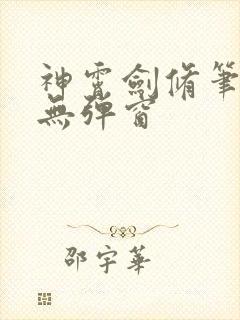 神霄劍脩筆
無彈窗
邵宇華